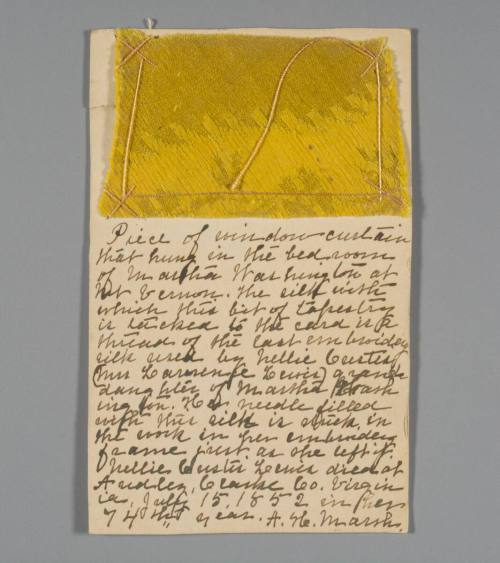 Piece of window curtain
that hung in the bed room
of Martha Washington at
Mt Vernon. The silk with
which this bit of tapestry
is tacked to the card is a
thread of the last embroidery
silk used by Nellie Custis
(Mrs Lawrence Lewis) grand
daughter of Martha Wash
ington. Her needle filled
with this silk is stuck in
the work in her embroidery
frame just as she left it.
Nellie Custis Lewis died at
Audley, Clarke Co. Virgin
ia, July 15, 1852 in her
74th year. A. H. Marsh.